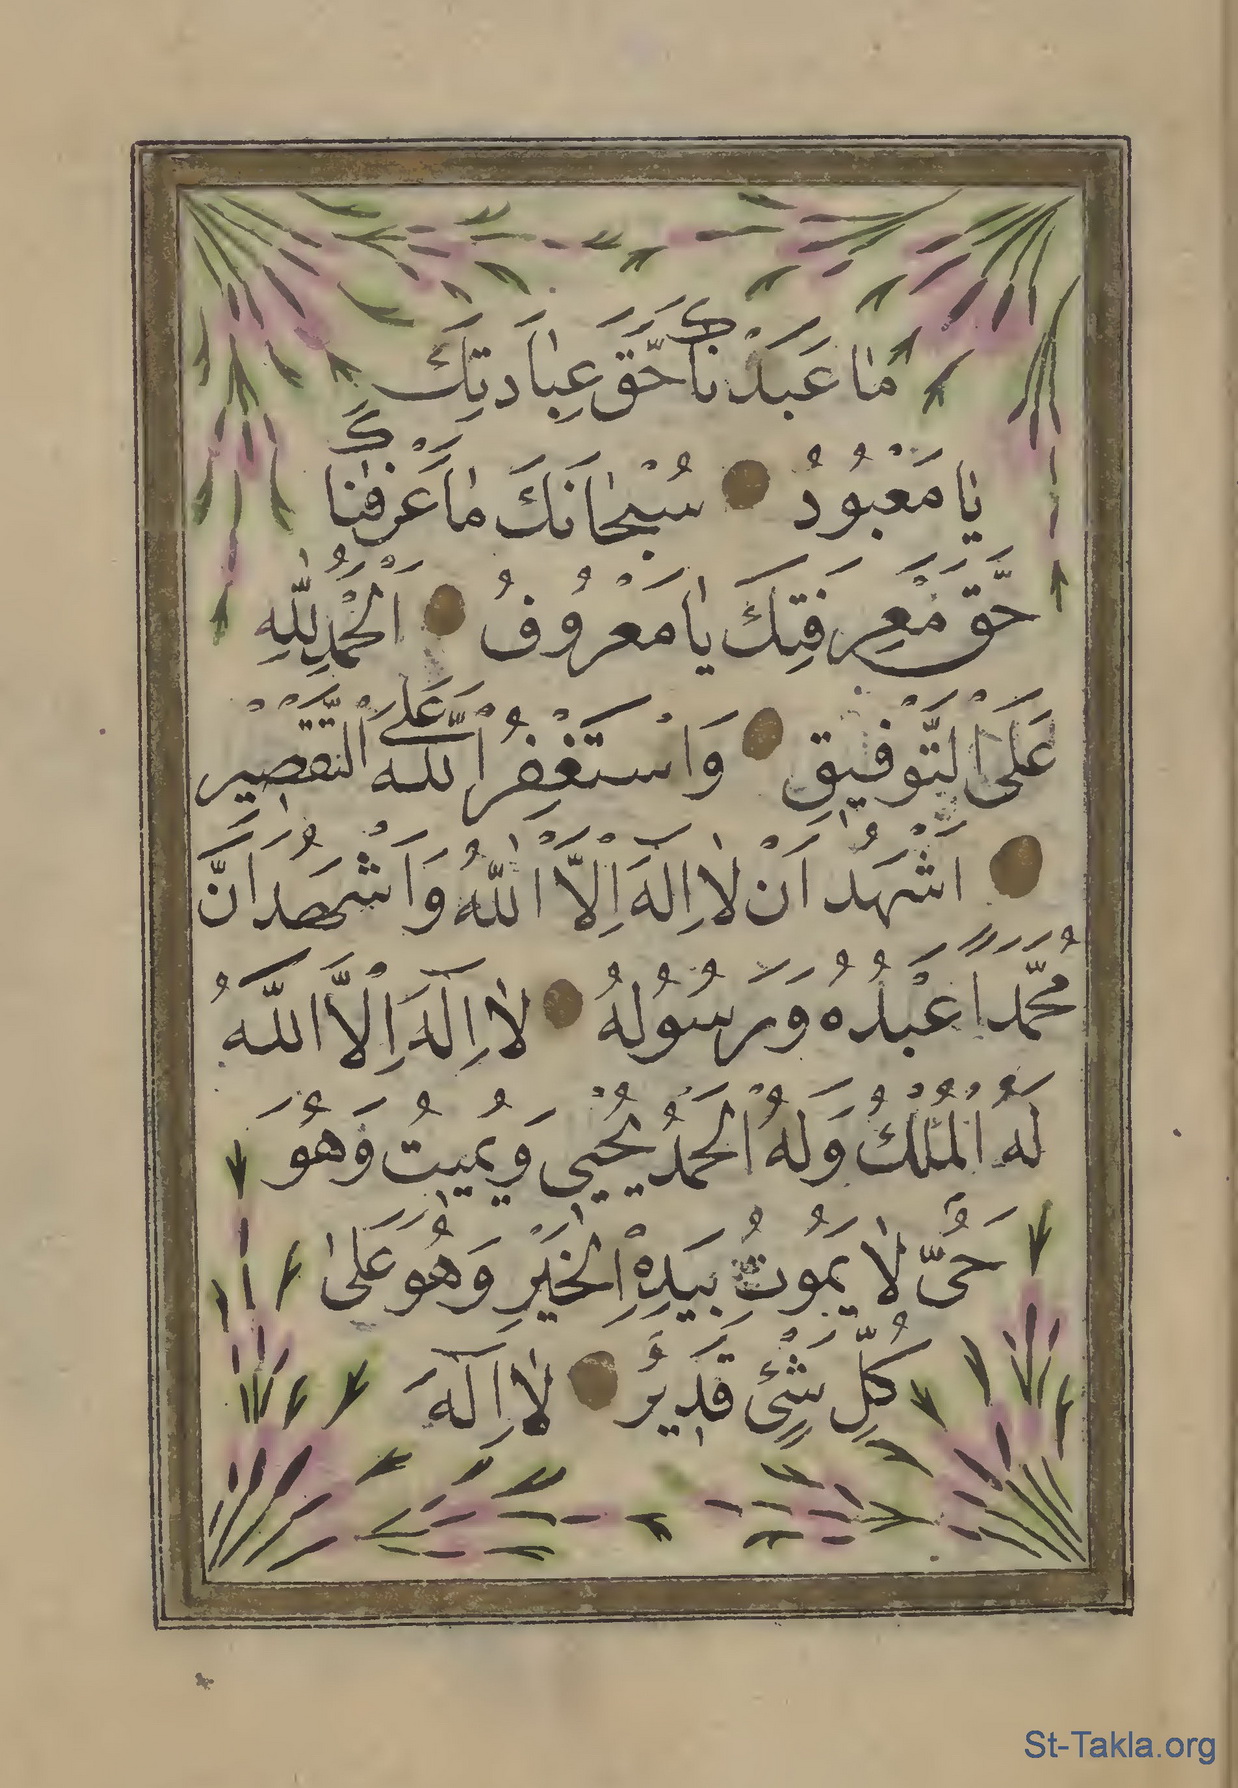 مَا عَبَدْنَاكَ حَقَّ عِبَادَتِكَ
يَا مَعْبُودُ سُبْحَانَكَ مَا عَرَفْنَاكَ
حَقَّ مَعْرِفَتِكَ يَا مَعْرُوفُ اَلْحَمْدُ لِلّٰهِ
عَلَى التَّوْفِيقِ وَاَسْتَغْفِرُ اللّٰهَ عَلَى التَّقْصِيْرِ
اَشْهَدُ اَنْ لَا اِلٰهَ اِلَّا اللّٰهُ وَاَشْهَدُ اَنَّ
مُحَمَّدًا عَبْدُهُ وَرَسُولُهُ لَا اِلٰهَ اِلَّا اللّٰهُ
لَهُ الْمُلْكُ وَلَهُ الْحَمْدُ يُحْيِي وَيُمِيتُ وَهُوَ
حَيٌّ لَا يَمُوتُ بِيَدِهِ الْخَيْرِ وَهُوَ عَلَى
كُلِّ شَيْءٍ قَدِيرٌ لَا اِلٰهَ
St-Takla.org